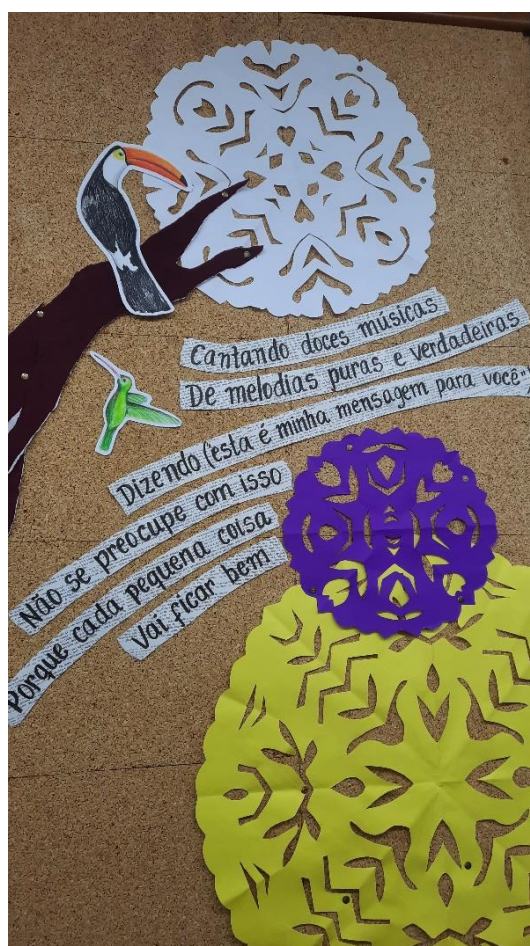 Cantando doces músicas
De melodias puras e verdadeiras
Dizendo ("esta é minha mensagem para você:
Não se preocupe com isso
Porque cada pequena coisa
Vai ficar bem